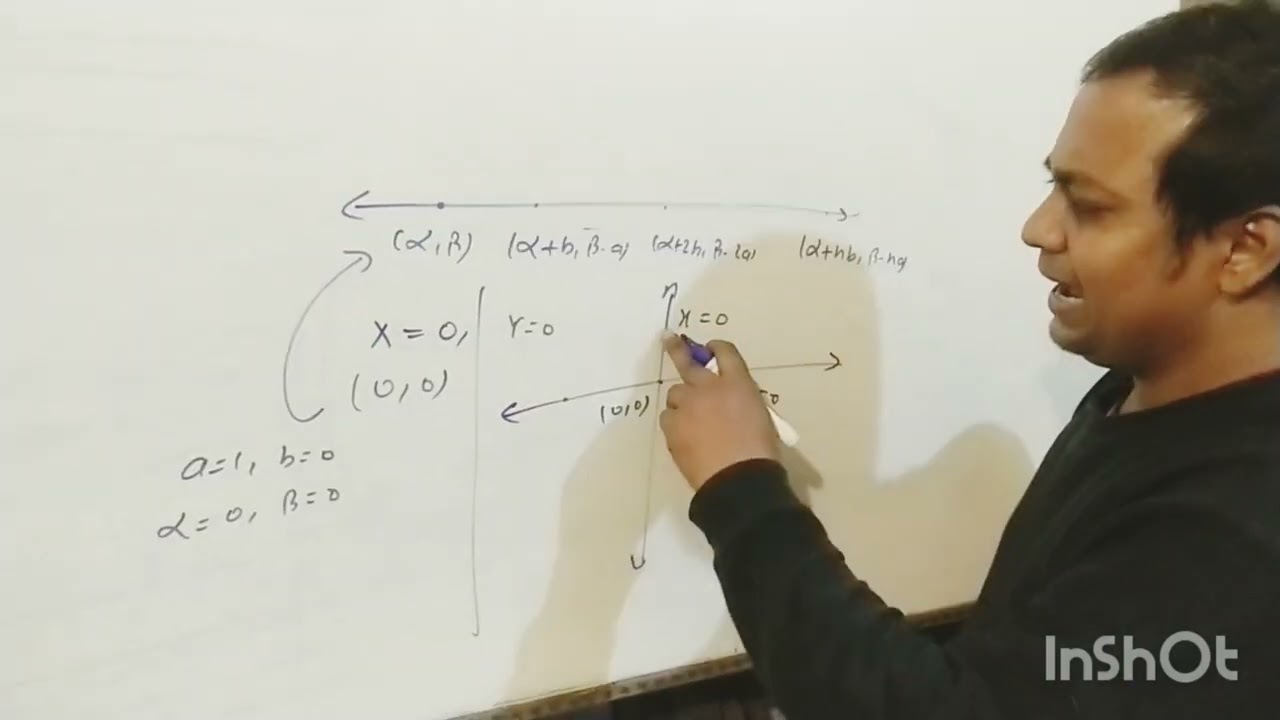 (α, β) (α+b, β-a) (α+2b, β-2a) (α+nb, β-na)
X = 0, Y=0 X=0
(0,0) (0,0) =0
a=1, b=0
α=0, β=0
InShOt